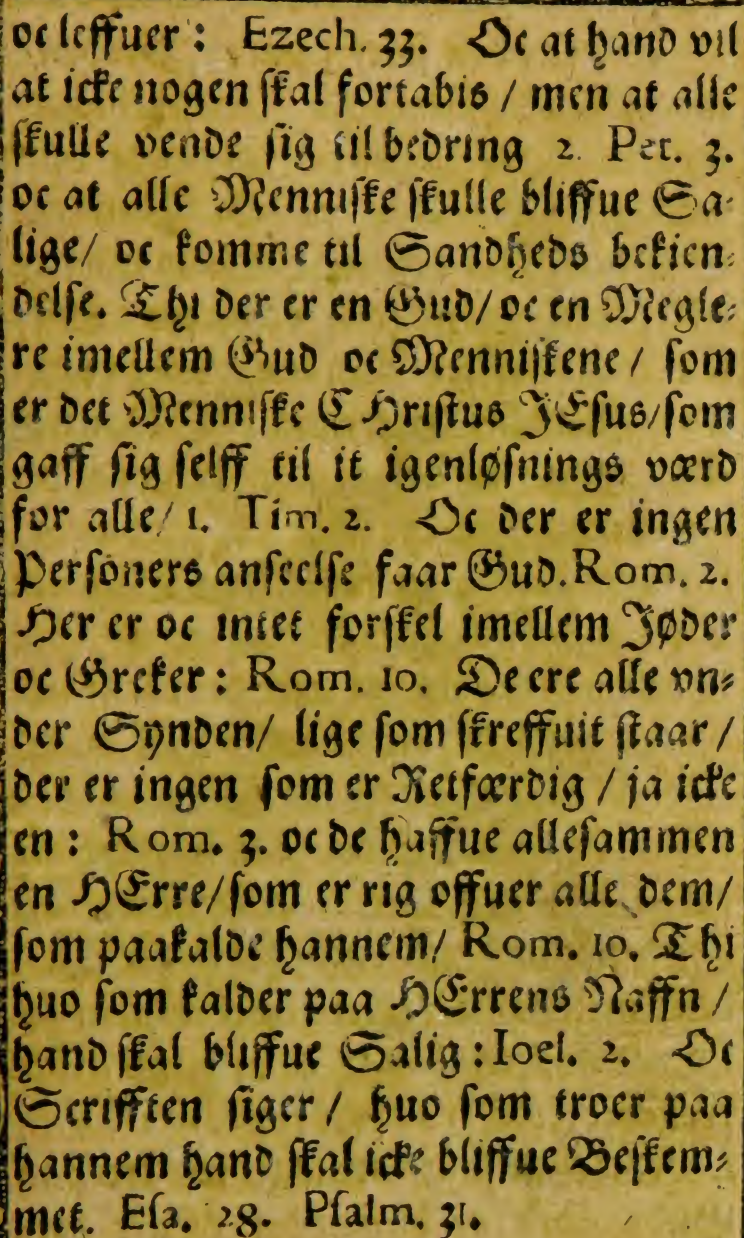 oc leffuer: Ezech. 33. Oc at hand vil
at icke nogen skal fortabis / men at alle
skulle vende sig til bedring 2. Pet. 3.
oc at alle Menniske skulle bliffue Sa-
lige/ oc komme til Sandheds bekien-
delse. Thi der er en Gud/ oc en Megle-
re imellem Gud oc Menniskene / som
er det Menniske CHristus JEsus/som
gaff sig selff til it igenløsnings værd
for alle/ 1. Tim. 2. Oc der er ingen
Personers anseelse faar Gud. Rom. 2.
Her er oc intet forskel imellem Jøder
oc Greker: Rom. 10. De ere alle vn-
der Synden/ lige som skreffuit staar /
der er ingen som er Retfærdig / ja icke
en: Rom. 3. oc de haffue allesammen
en HErre/som er rig offuer alle dem/
som paakalde hannem/ Rom. 10. Thi
huo som kalder paa HErrens Naffn /
hand skal bliffue Salig: Ioel. 2. Oc
Scrifften siger / huo som troer paa
hannem hand skal icke bliffue Beskem-
met. Esa. 28. Psalm. 31.